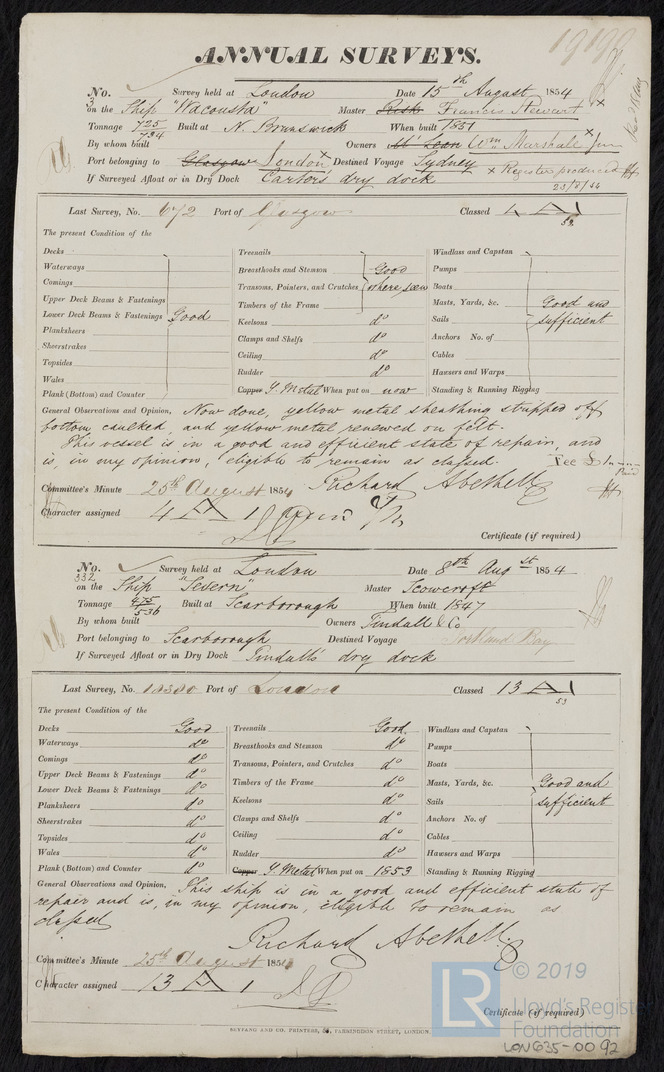 19199
ANNUAL SURVEYS.
No. 3 Survey held at London Date 15th August 1854
on the Ship "Wacousta" Master Risk Francis Stewart x
Tonnage 725/734 Built at N. Brunswick When built 1851
By whom built Owners McLean Wm Marshall Jun x
Port belonging to Glasgow London x Destined Voyage Sydney x Register produced
If Surveyed Afloat or in Dry Dock Carter's dry dock 23/8/54
Last Survey, No. 672 Port of Glasgow Classed 4 A 1
53
The present Condition of the
Decks Treenails Windlass and Capstan
Waterways Breasthooks and Stemson Good Pumps
Comings Transoms, Pointers, and Crutches where seen Boats
Upper Deck Beams & Fastenings Timbers of the Frame Masts, Yards, &c. Good and
Lower Deck Beams & Fastenings Good Keelsons do Sails sufficient
Planksheers Clamps and Shelfs do Anchors No. of
Sheerstrakes Ceiling do Cables
Topsides Rudder do Hawsers and Warps
Wales Copper Y. Metal When put on now Standing & Running Rigging
Plank (Bottom) and Counter
General Observations and Opinion, Now done, yellow metal sheathing stripped off
bottom caulked, and yellow metal renewed on felt.
This vessel is in a good and efficient state of repair, and
is, in my opinion, eligible to remain as classed. Fee £1
Paid
Committee's Minute 25th August 1854 Richard Abethell
Character assigned 4 A 1
Certificate (if required)
No. 332 Survey held at London Date 8th Augst 1854
on the Ship "Severn" Master Scowcroft
Tonnage 475/536 Built at Scarborough When built 1847
By whom built Owners Tindall & Co.
Port belonging to Scarborough Destined Voyage Portland Bay
If Surveyed Afloat or in Dry Dock Tindall's dry dock
Last Survey, No. Port of London Classed 13 A 1
53
The present Condition of the
Decks Good Treenails Good Windlass and Capstan
Waterways do Breasthooks and Stemson do Pumps
Comings do Transoms, Pointers, and Crutches do Boats
Upper Deck Beams & Fastenings do Timbers of the Frame do Masts, Yards, &c. Good and
Lower Deck Beams & Fastenings do Keelsons do Sails sufficient
Planksheers do Clamps and Shelfs do Anchors No. of
Sheerstrakes do Ceiling do Cables
Topsides do Rudder do Hawsers and Warps
Wales do Copper Y. Metal When put on 1853 Standing & Running Rigging
Plank (Bottom) and Counter do
General Observations and Opinion, This ship is in a good and efficient state of
repair and is, in my opinion, eligible to remain as
classed
Richard Abethell
Committee's Minute 25th August 1854
Character assigned 13 A 1
Certificate (if required)
SEYFANG AND CO. PRINTERS, FARRINGDON STREET, LONDON
LR © 2019
Lloyd's Register
Foundation
LON635-0092